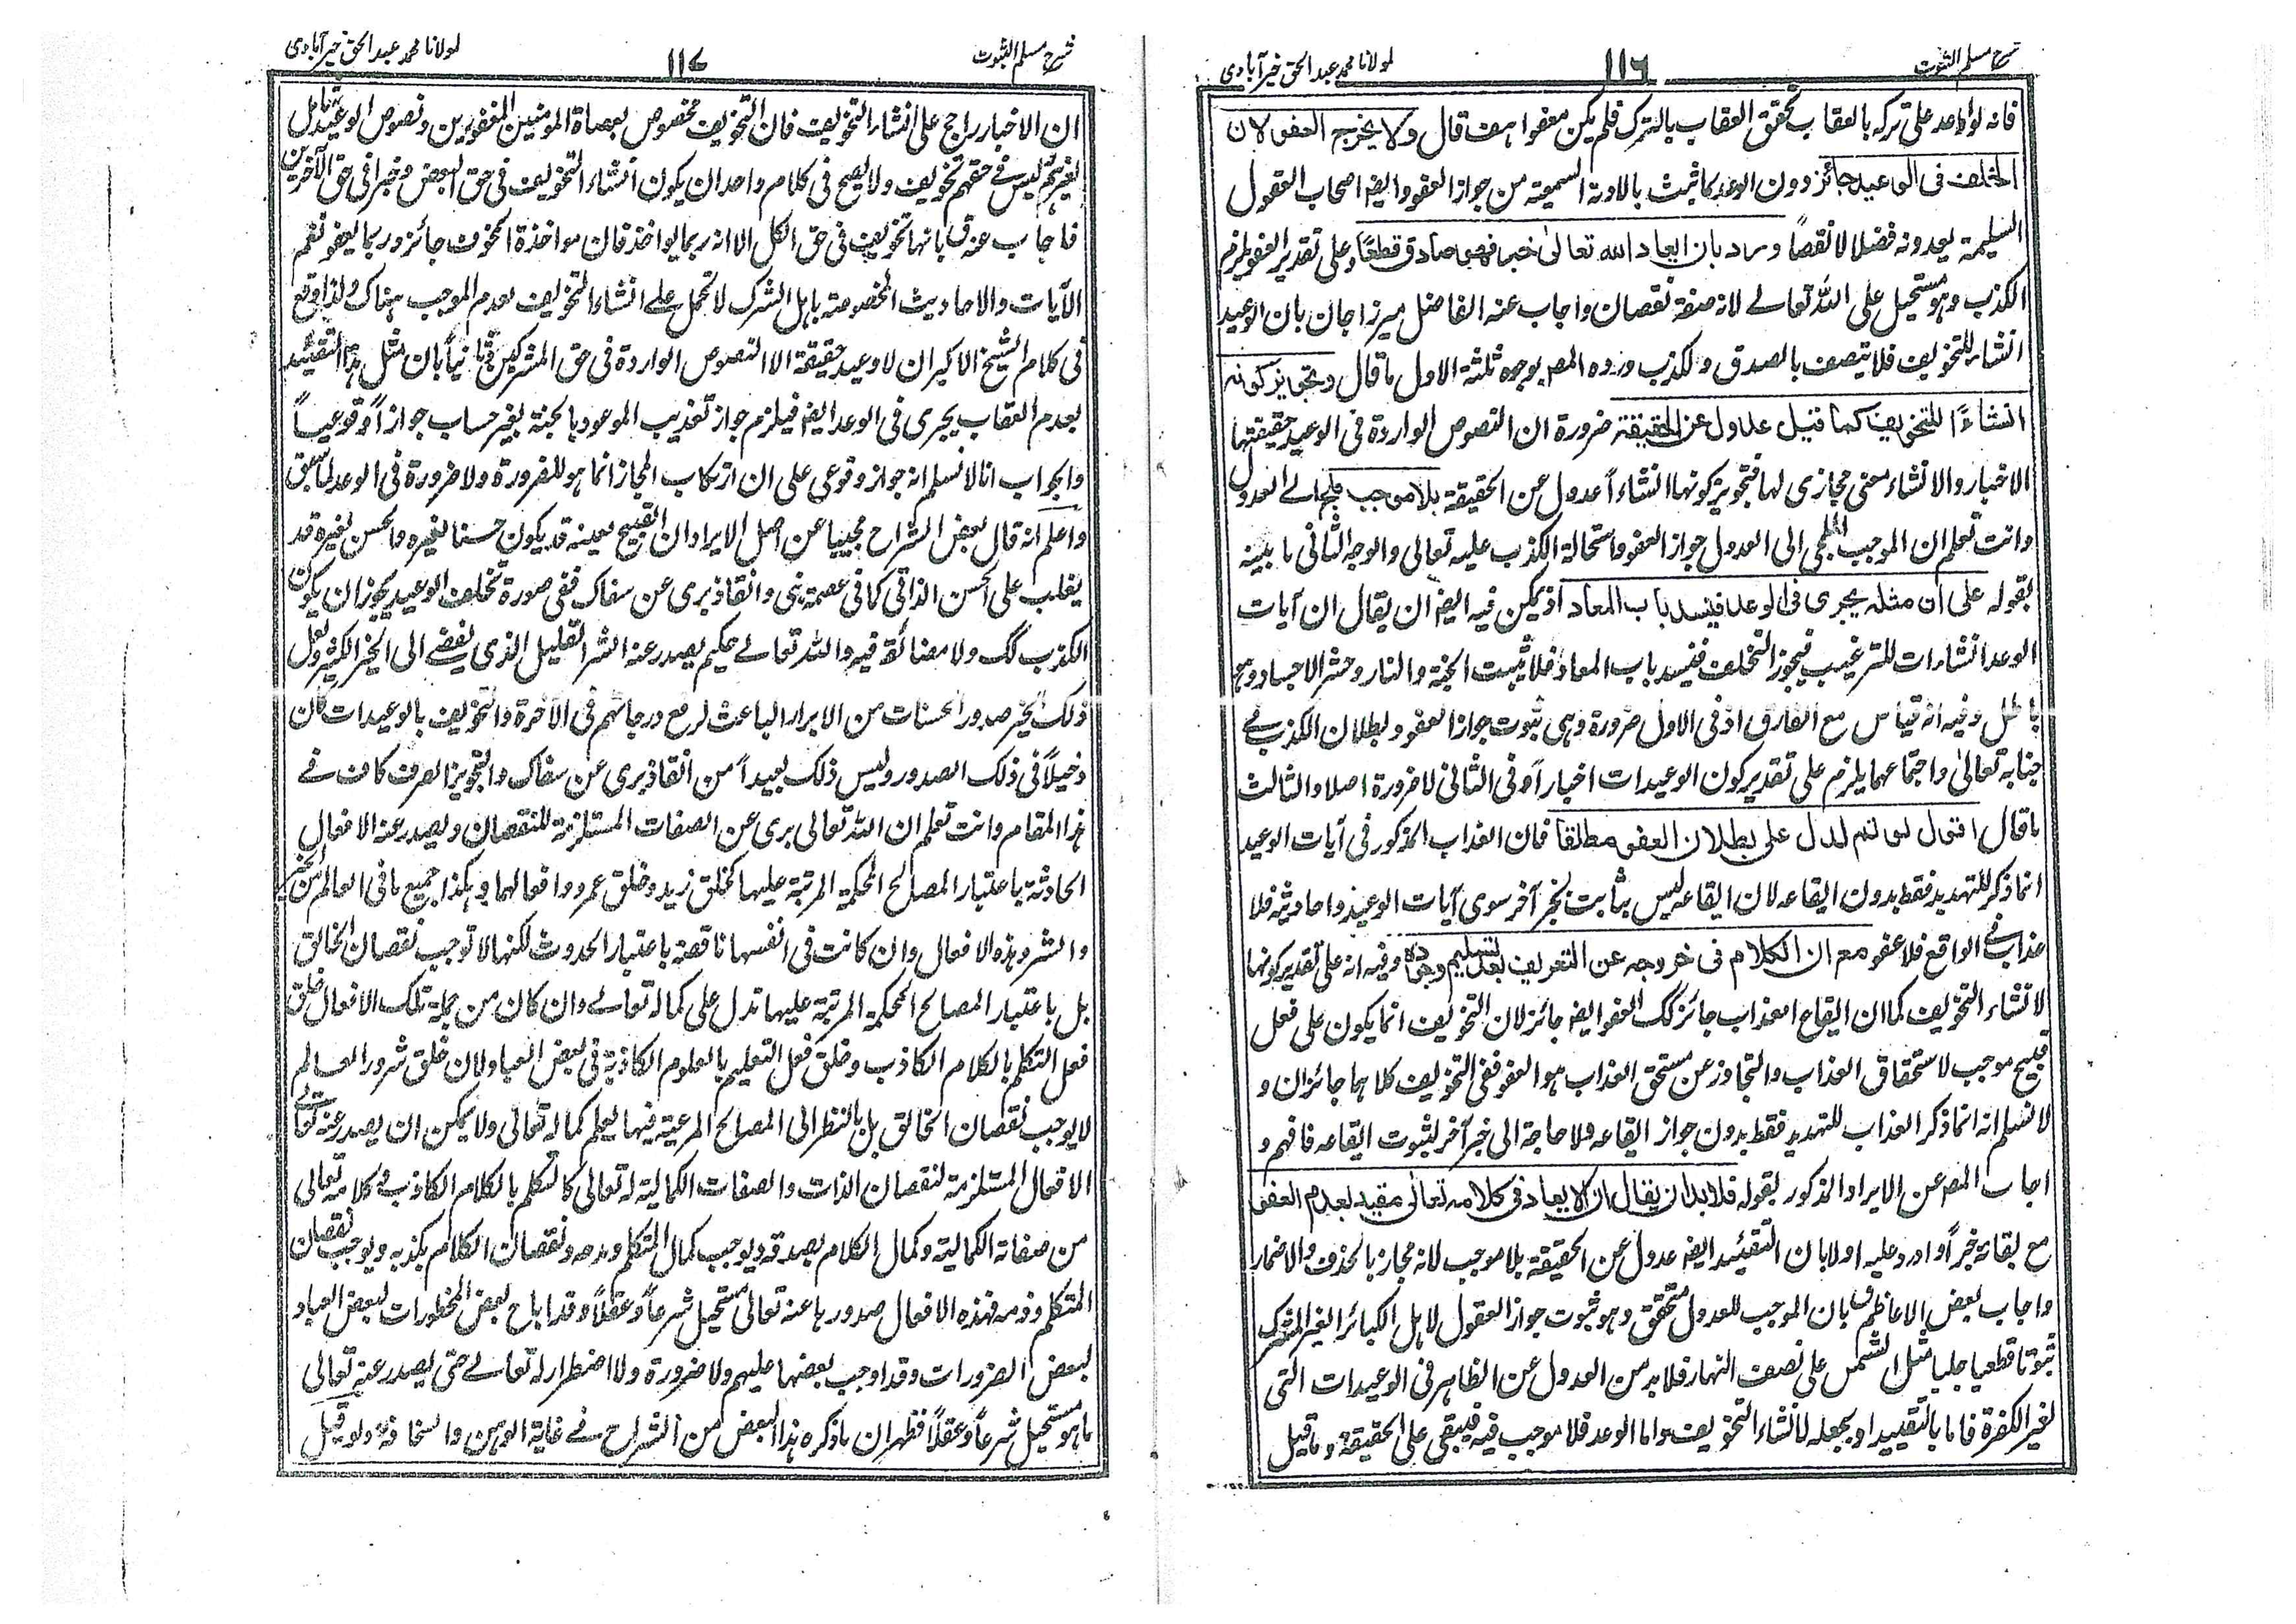 شرح مسلم الثبوت
١١٦
لمولانا محمد عبد الحق خيرآبادى
فانه لواوعد على تركه بالعقاب تحقق العقاب بالترك فلم يكن معفوا هف قال ولا يخرج العفو لان
الخلف فى الوعيد جائز دون الوعد كما ثبت بالادلة السمعية من جواز العفو وايضه اصحاب العقول
السليمة يعدونه فضلا لا نقصاً ورد بان ايعاد الله تعالى خبر فهو صادق قطعاً وعلى تقدير العفو يلزم
الكذب وهو مستحيل على الله تعالے لانه صفة نقصان واجاب عنه الفاضل ميرزا جان بان الوعيد
انشاء للتخويف فلا يتصف بالصدق والكذب ورده المصـ بوجوه ثلثة الاول ما قال وتجويز كونه
انشاءً للتخويف كما قيل عدول عن الحقيقة ضرورة ان النصوص الواردة فى الوعيد حقيقتها
الاخبار والانشاء معنى مجازى لها فتجويز كونها انشاءً عدول عن الحقيقة بلا موجب ملجئ الے العدول
وانت تعلم ان الموجب الملجى الى العدول جواز العفو واستحالة الكذب عليه تعالى والوجه الثانى ما بينه
بقوله على ان مثله يجرى فى الوعد فينسد باب المعاد اذ يمكن فيه ايضه ان يقال ان آيات
الوعد انشاءات للترغيب فيجوز التخلف فينسد باب المعاد فلا يثبت الجنة والنار وحشر الاجساد وهو
باطل وفيه انه قياس مع الفارق اذ فى الاول ضرورة وهى ثبوت جواز العفو وبطلان الكذب فے
جنابه تعالىٰ واجتماعهما يلزم على تقدير كون الوعيدات اخباراً وفى الثانى لا ضرورة اصلا والثالث
ما قال اقول لو تم لدل على بطلان العفو مطلقا فان العذاب المذكور فى آيات الوعيد
انما ذكر للتهديد فقط بدون ايقاعه لان ايقاعه ليس بثابت بخبر آخر سوى آيات الوعيد واحاديثه فلا
عذاب فے الواقع فلا عفو مع ان الكلام فى خروجه عن التعريف بعد تسليم وجوده وفيه انه على تقدير كونها
لانشاء التخويف كما ان ايقاع العذاب جائز كك العفو ايضه جائز لان التخويف انما يكون على فعل
قبيح موجب لاستحقاق العذاب والتجاوز عن مستحق العذاب هو العفو ففى التخويف كلاهما جائزان و
لا نسلم انه انما ذكر العذاب للتهديد فقط بدون جواز ايقاعه ولا حاجة الى خبر آخر لثبوت ايقاعه فافهم و
اجاب المصـ عن الايراد المذكور بقوله فلا بد ان يقال ان الايعاد فى كلامه تعالى مقيد بعدم العفو
مع بقائه خبراً واورد عليه اولا بان التقييد ايضه عدول عن الحقيقة بلا موجب لانه مجاز بالحذف والاضمار
واجاب بعض الاعاظم ق بان الموجب للعدول متحقق وهو ثبوت جواز العفو لاهل الكبائر الغير المشرك
ثبوتا قطعيا جليا مثل الشمس على نصف النهار فلا بد من العدول عن الظاهر فى الوعيدات التى
لغير الكفرة فاما بالتقييد او بجعله لانشاء التخويف واما الوعد فلا موجب فيه فيبقى على الحقيقة وما قيل
شرح مسلم الثبوت
١١٧
لمولانا محمد عبد الحق خيرآبادى
ان الاخبار راجح على انشاء التخويف فان التخويف مخصوص بعصاة المومنين المغفورين ونصوص الوعيد شامل
لغيرهم ليس فے حقهم تخويف ولا يصح فى كلام واحد ان يكون انشاء التخويف فى حق البعض وخبرا فى حق الآخرين
فاجاب عنه ق بانها تخويف فى حق الكل الا انه ربما يواخذ فان مواخذة المخوف جائز وربما يعفو نعم
الآيات والاحاديث المخصوصة باهل الشرك لا تحمل علے انشاء التخويف لعدم الموجب هناك ولذا وقع
فى كلام الشيخ الاكبر ان لا وعيد حقيقة الا النصوص الواردة فى حق المشركين وثانياً بان مثل هذا التقييد
بعدم العقاب يجرى فى الوعد ايضه فيلزم جواز تعذيب الموعود بالجنة بغير حساب جوازاً وقوعياً
والجواب انا لا نسلم انه جواز وقوعى على ان ارتكاب المجاز انما هو للضرورة ولا ضرورة فى الوعد لما سبق
واعلم انه قال بعض الشراح مجيبا عن اصل الايراد ان القبيح لعينه قد يكون حسنا لغيره والحسن لغيره قد
يغلب على الحسن الذاتى كما فى عصمة نبى وانقاذ برى عن سفاك ففى صورة تخلف الوعيد يجوز ان يكون
الكذب كك ولا مضائقة فيه والله تعالے حكيم يصدر عنه الشر القليل الذى يفضے الى الخير الكثير ولعل
ذلك الخير صدور الحسنات من الابرار الباعث لرفع درجاتهم فى الآخرة والتخويف بالوعيدات كان
دخيلاً فى ذلك الصدور وليس ذلك بعيداً من انقاذ برى عن سفاك والتجويز الصرف كاف فے
هذا المقام وانت تعلم ان الله تعالى برى عن الصفات المستلزمة للنقصان ويصدر عنه الافعال
الحادثة باعتبار المصالح المحكمة المرتبة عليها كخلق زيد وخلق عمرو وافعالهما وهكذا جميع ما فى العالم من الخير
والشر وهذه الافعال وان كانت فى انفسها ناقصة باعتبار الحدوث لكنها لا توجب نقصان الخالق
بل باعتبار المصالح المحكمة المرتبة عليها تدل على كماله تعالے وان كان من جملة تلك الافعال خلق
فعل التكلم بالكلام الكاذب وخلق فعل التعليم بالعلوم الكاذبة فى بعض العباد لان خلق شرور العالم
لا يوجب نقصان الخالق بل بالنظر الى المصالح المرعية فيها يعلم كماله تعالى ولا يمكن ان يصدر عنه تعالے
الافعال المستلزمة لنقصان الذات والصفات الكمالية له تعالى كالتكلم بالكلام الكاذب فے كلامه تعالى
من صفاته الكمالية وكمال الكلام بصدقه ويوجب كمال المتكلم ومدحه ونقصان الكلام بكذبه ويوجب نقصان
المتكلم وذمه فهذه الافعال صدورها عنه تعالى مستحيل شرعاً وعقلاً وقد اباح بعض المحظورات لبعض العباد
لبعض الضرورات وقد اوجب بعضها عليهم ولا ضرورة ولا اضطرار له تعالے حتى يصدر عنه تعالى
ما هو مستحيل شرعاً وعقلاً فظهر ان ما ذكره هذا البعض من الشراح فے غاية الوهن والسخافة ولو قيل